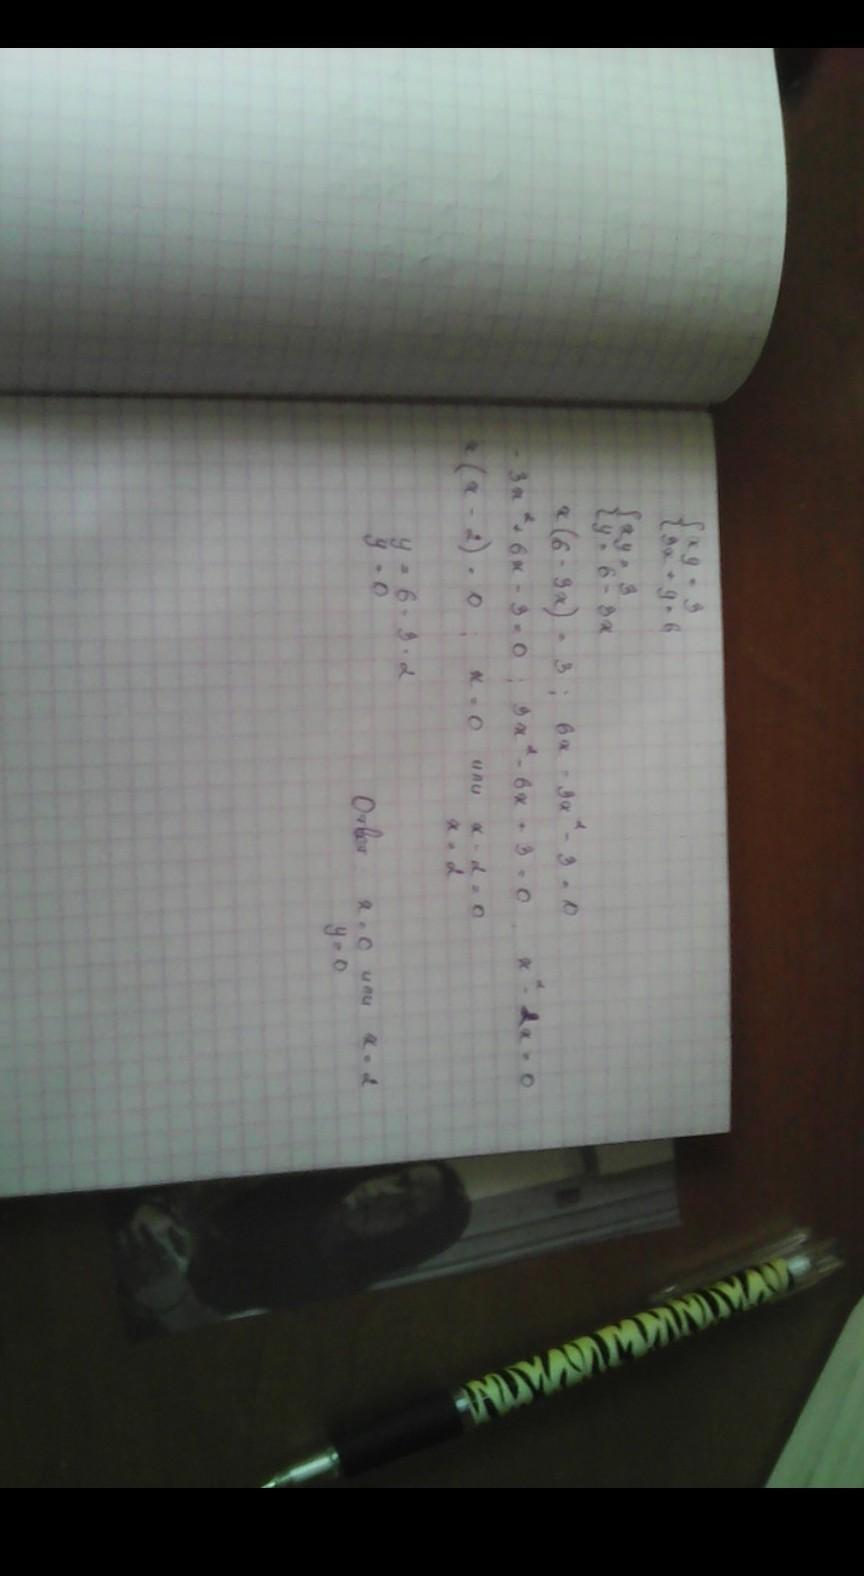 { xy = 3
{ 3x + y = 6
{ xy = 3
{ y = 6 - 3x
x(6 - 3x) = 3; 6x - 3x² - 3 = 0
- 3x² + 6x - 3 = 0; 3x² - 6x + 3 = 0. x² - 2x = 0
x(x - 2) = 0; x = 0 или x - 2 = 0
x = 2
y = 6 - 3 · 2
y = 0
Ответ: x = 0 или x = 2
y = 0